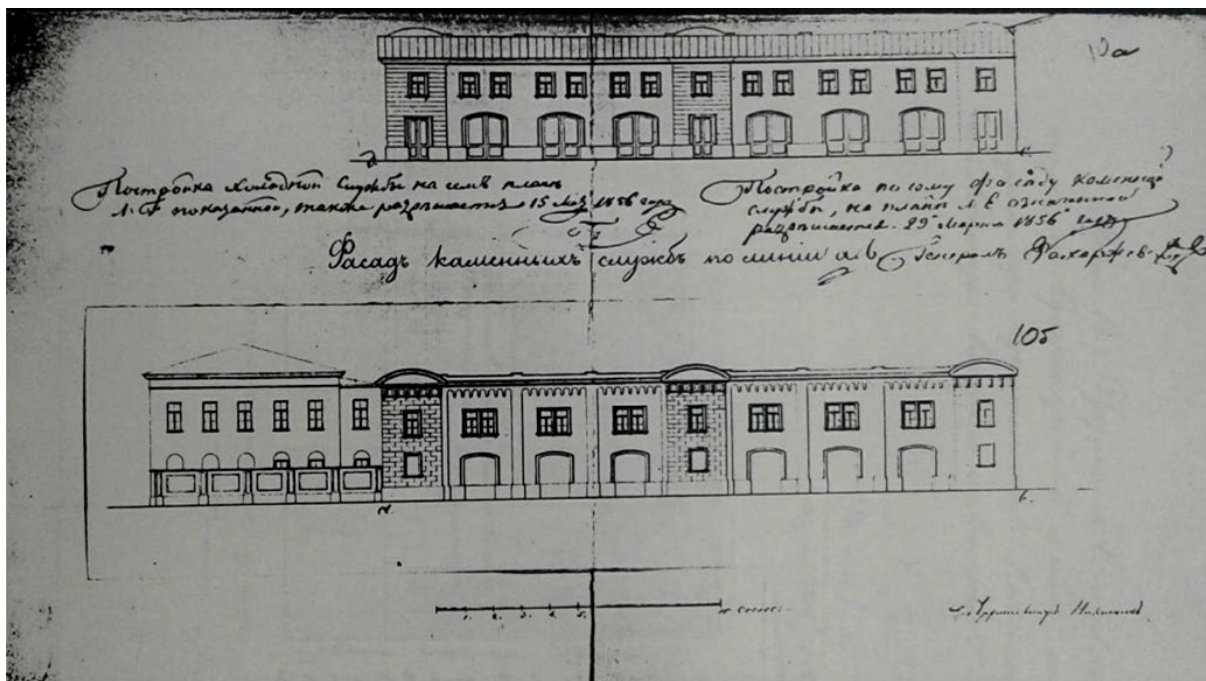 10а
Постройка холодной службы на семъ планѣ
А. Г показанной, также разрѣшается 15 Мая 1856 года
Постройка по сому фасаду каменной
службы, на планѣ А. Е означенной
разрѣшается. 29 Марта 1856 года
Фасадъ каменныхъ службъ по линіи а. b
Генералъ
10б
1. 2. 3. 4. 5. 10 сажень.